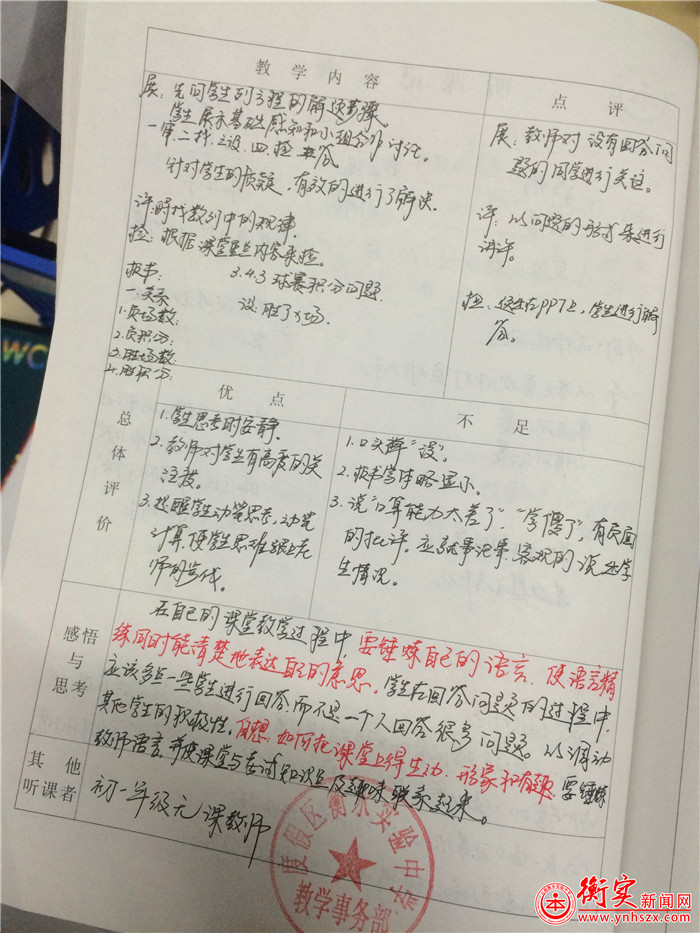 教学内容
点评
展：先问学生列方程的解题步骤
学生展示基础感知和小组合作讨论。
一审、二找、三设、四、检 答
针对学生的质疑，有效的进行了解决。
评：时找数列中的规律。
检：根据课堂重点内容来检。
板书： 3.4.3 球赛积分问题.
一.关系 设：胜了x场.
1.负场数：
2.负积分：
3.胜场数：
4.胜积分：
展：教师对没有回答问
题的同学进行关注。
评：以问题的形式来进行
讲评。
检：便在PPT上，学生进行解
答。
总体评价
优点
1.学生思考时安静.
2.教师对学生有高度的关
注度。
3.提醒学生动笔思考，动笔
计算，使学生思维跟上老
师的步伐。
不足
1.口头禅“没”。
2.板书字体略显小。
3.说“口算能力太差了”，“学傻了”，有负面
的批评。应就事论事，客观的说出学
生情况。
感悟与思考
在自己的课堂教学过程中，要锤炼自己的语言，使语言精
练同时能清楚地表达自己的意思。学生在回答问题的过程中，
应该多点一些学生进行回答而不是一个人回答很多问题。以调动
其他学生的积极性。自想：如何把课堂上得生动、形象和有趣，要锤炼
教师语言，并使课堂与考试知识点及趣味联系起来。
其他听课者
初一年级无课教师
度假区衡水实验中学
教学事务部
衡实新闻网
www.ynhszx.com
WC